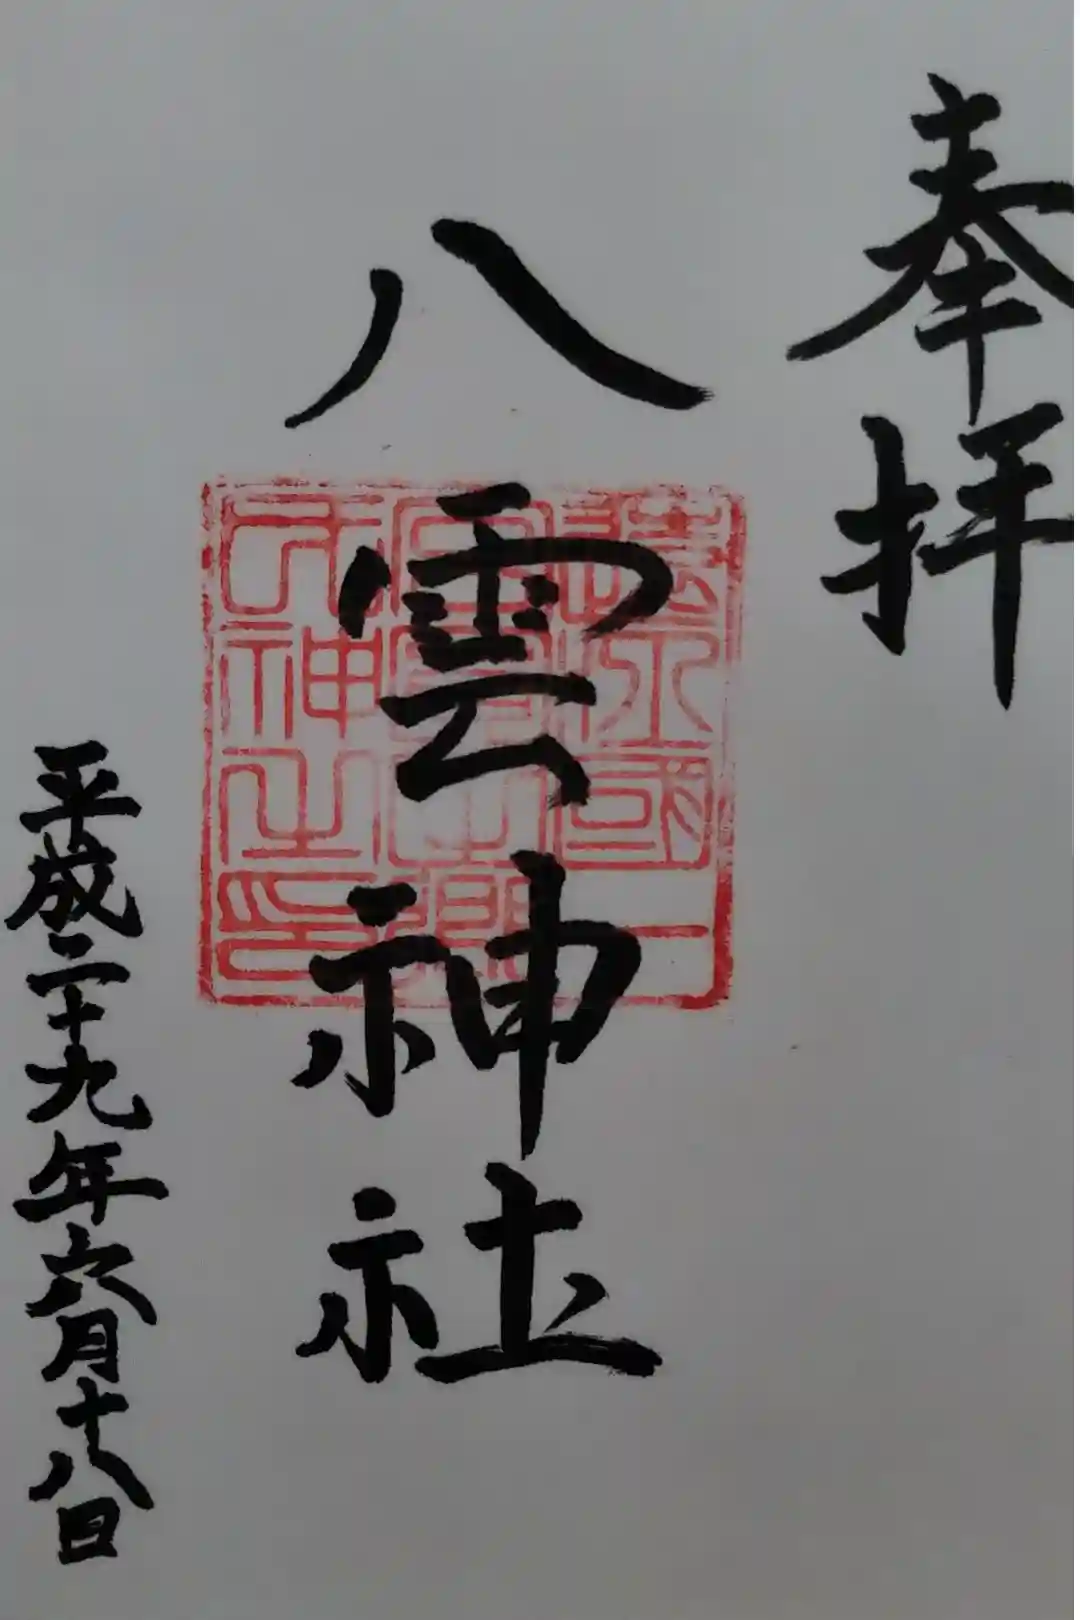 奉拝
八雲神社
平成二十九年六月十八日